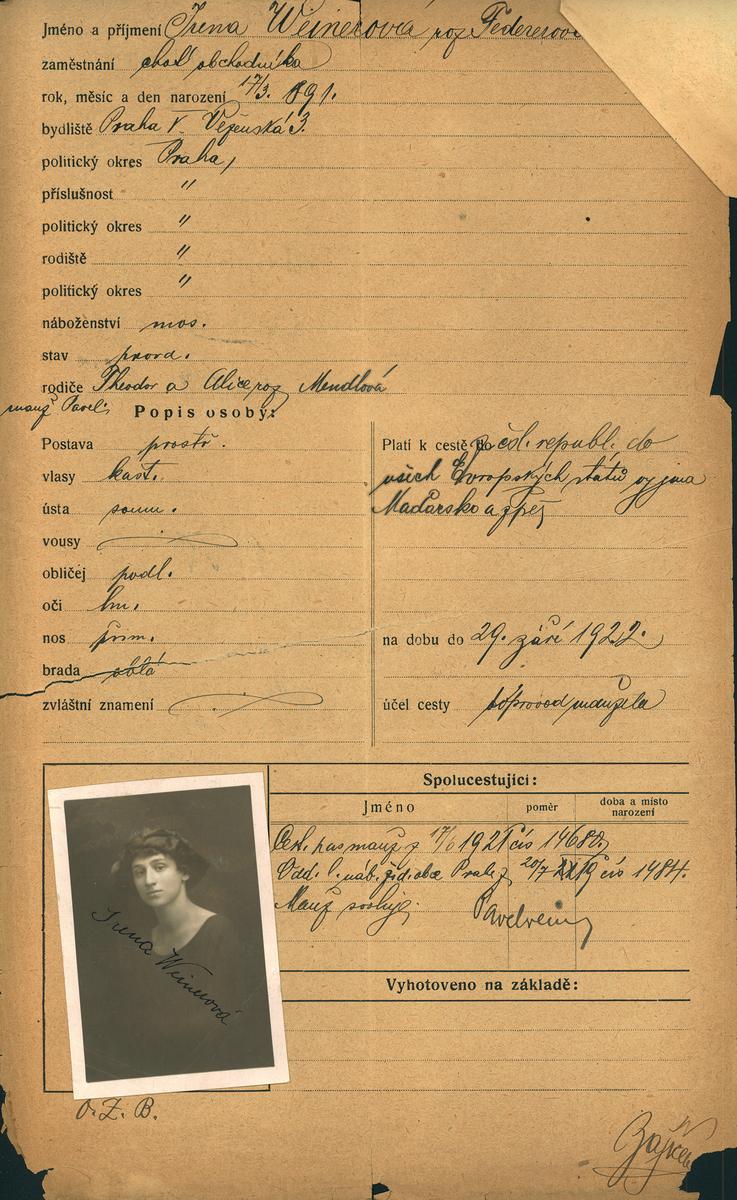 Jméno a příjmení Irena Weinerová roz. Federerová
zaměstnání choť obchodníka
rok, měsíc a den narození 17/3. 891.
bydliště Praha V. Vězeňská 3.
politický okres Praha,
příslušnost "
politický okres "
rodiště "
politický okres "
náboženství mos.
stav provd.
rodiče Theodor a Alice roz. Mendlová
manž. Pavel
Popis osoby:
Postava prostř.
vlasy kašt.
ústa soum.
vousy
obličej podl.
oči hn.
nos přim.
brada oblá
zvláštní znamení
Platí k cestě po čsl. republ. do
všech Evropských států vyjma
Maďarsko a zpět
na dobu do 29. září 1922.
účel cesty doprovod manžela
Spolucestující:
Jméno
poměr
doba a místo narození
Cest. pas manž. z 17/6 1921 čís 14680,
Odd. l. náb. žid. obce Praha z 20/7 19 čís 1484.
Manž. svoluje.
Vyhotoveno na základě:
Irena Weinerová
O. Z. B.